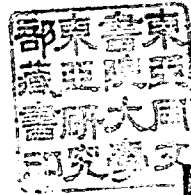 東亞同文
書院大學
東亞研究
部藏書印